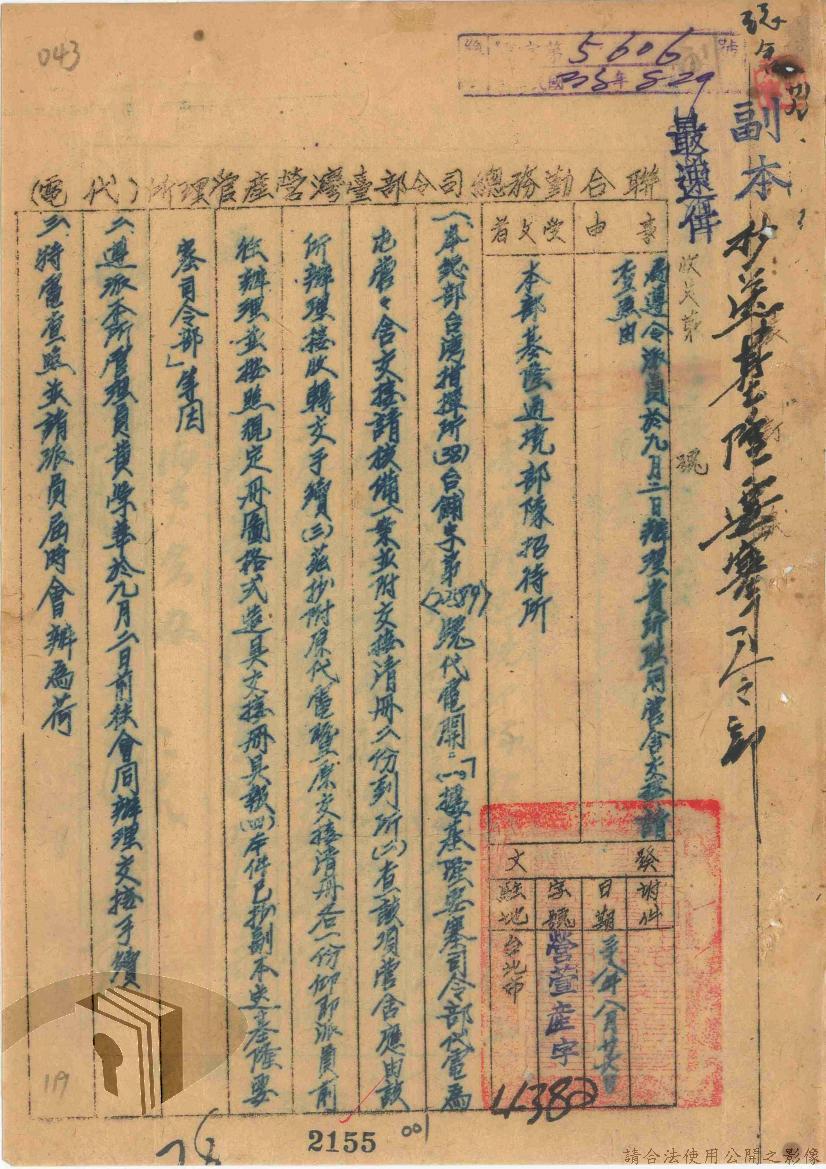 043
5606
38年8 29
副本
最速件
抄送基隆要塞司令部
聯合勤務總司令部臺灣營產管理所(代電)
收文第 號
事由
為遵令派員於九月二日辦理貴所駐用營舍交接請
查照由
受文者
本部基隆過境部隊招待所
發文
附件
日期
卅八年八月廿六日
字號
營萱產字
4382
駐地
台北市
一、奉總部台灣指揮所(38)台鋪字第(2289)號代電開:「(一)據基隆要塞司令部代電為
屯營營舍交接請核備一案並附交接清冊二份到所(二)查該項營舍應由該
所辦理接收轉交手續(三)茲抄附原代電暨原交接清冊各一份仰即派員前
往辦理並按照規定冊圖格式造具交接冊具報(四)本件已抄副本送基隆要
塞司令部」等因
二、遵派本所管理員黃學華於九月二日前往會同辦理交接手續
三、特電查照並請派員屆時會辦為荷
119
2155
001
請合法使用公開之影像